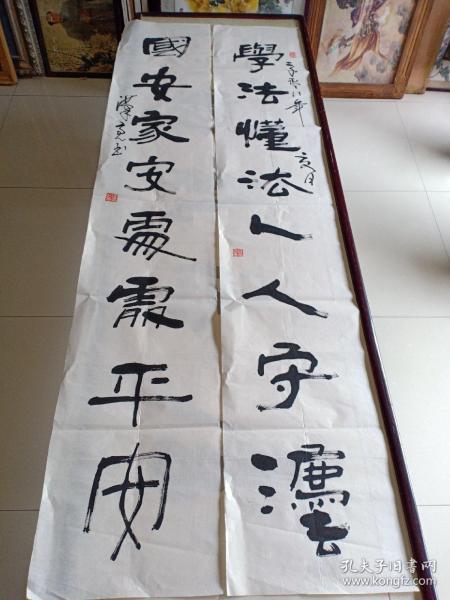 學法懂法人人守灋
二零零八年
夏月
國安家安處處平安
孔夫子旧书网
www.kongfz.com